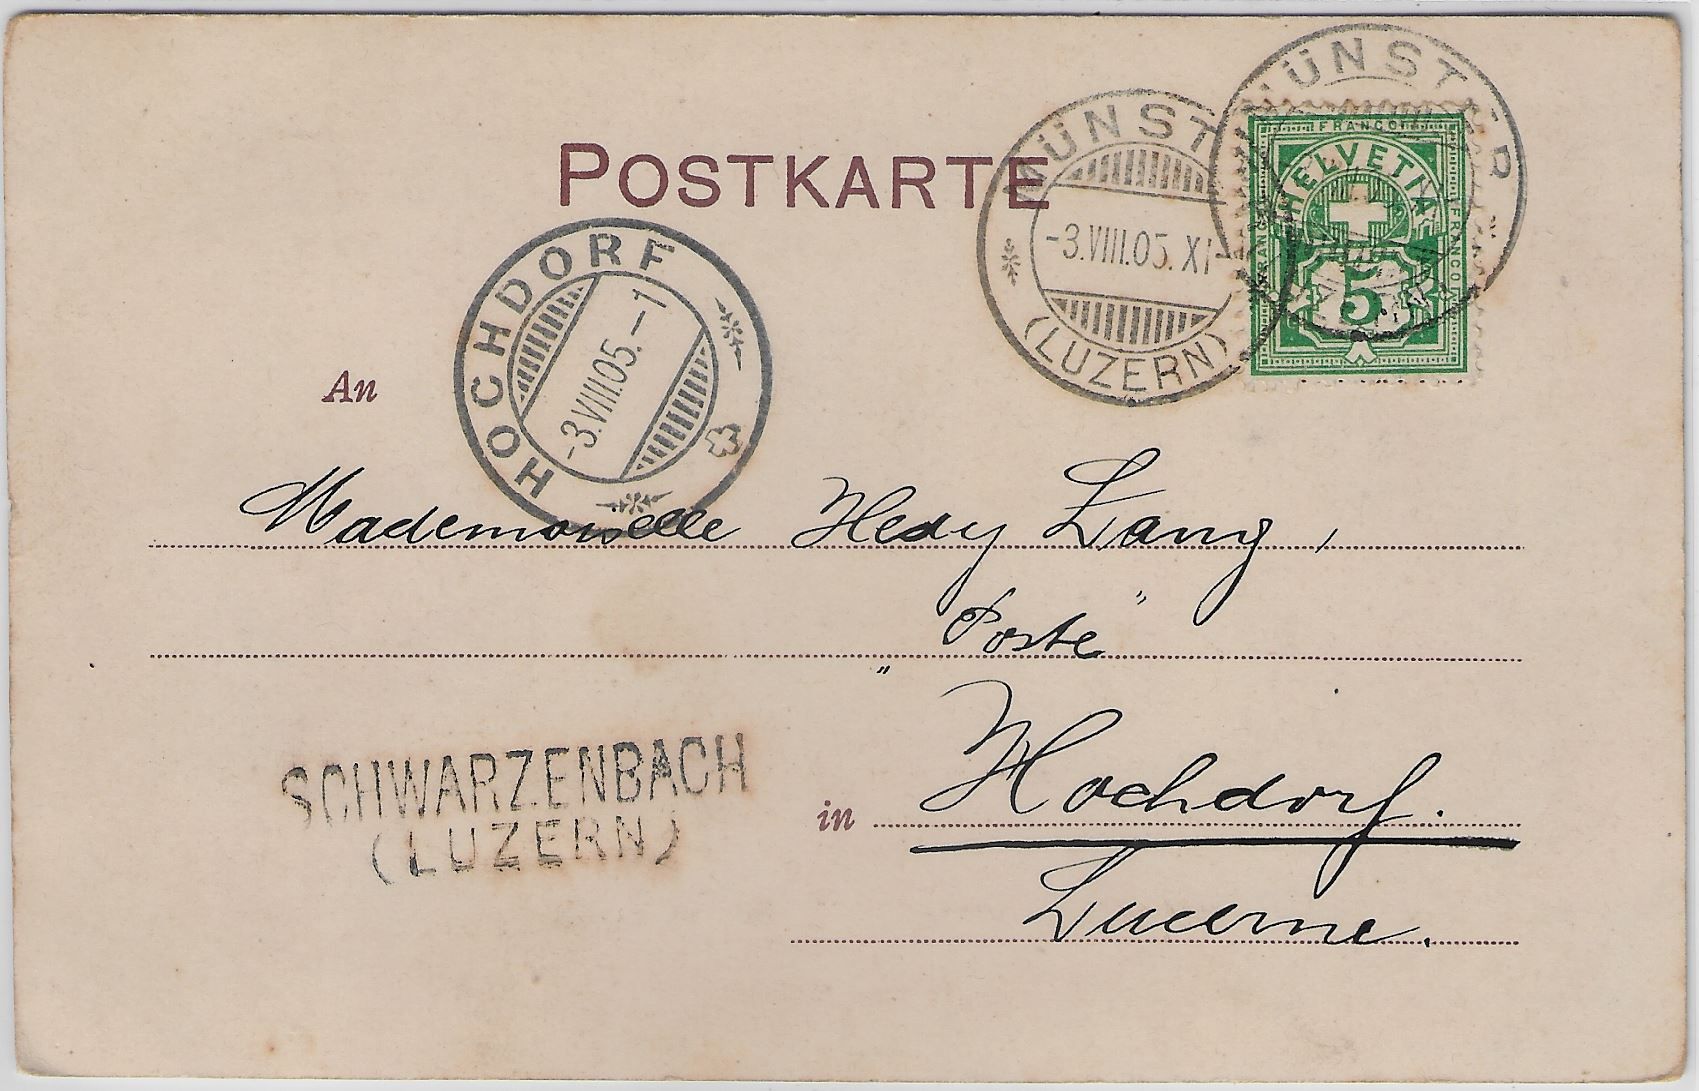 POSTKARTE
MÜNSTER
MÜNSTER
-3.VIII.05.XI-
(LUZERN)
FRANCO
FRANCO
FRANCO
HELVETIA
5
HOCHDORF
-3.VIII.05.-1
An
Mademoiselle Hedy Lang,
"Poste"
SCHWARZENBACH
(LUZERN)
in Hochdorf.
Lucerne.